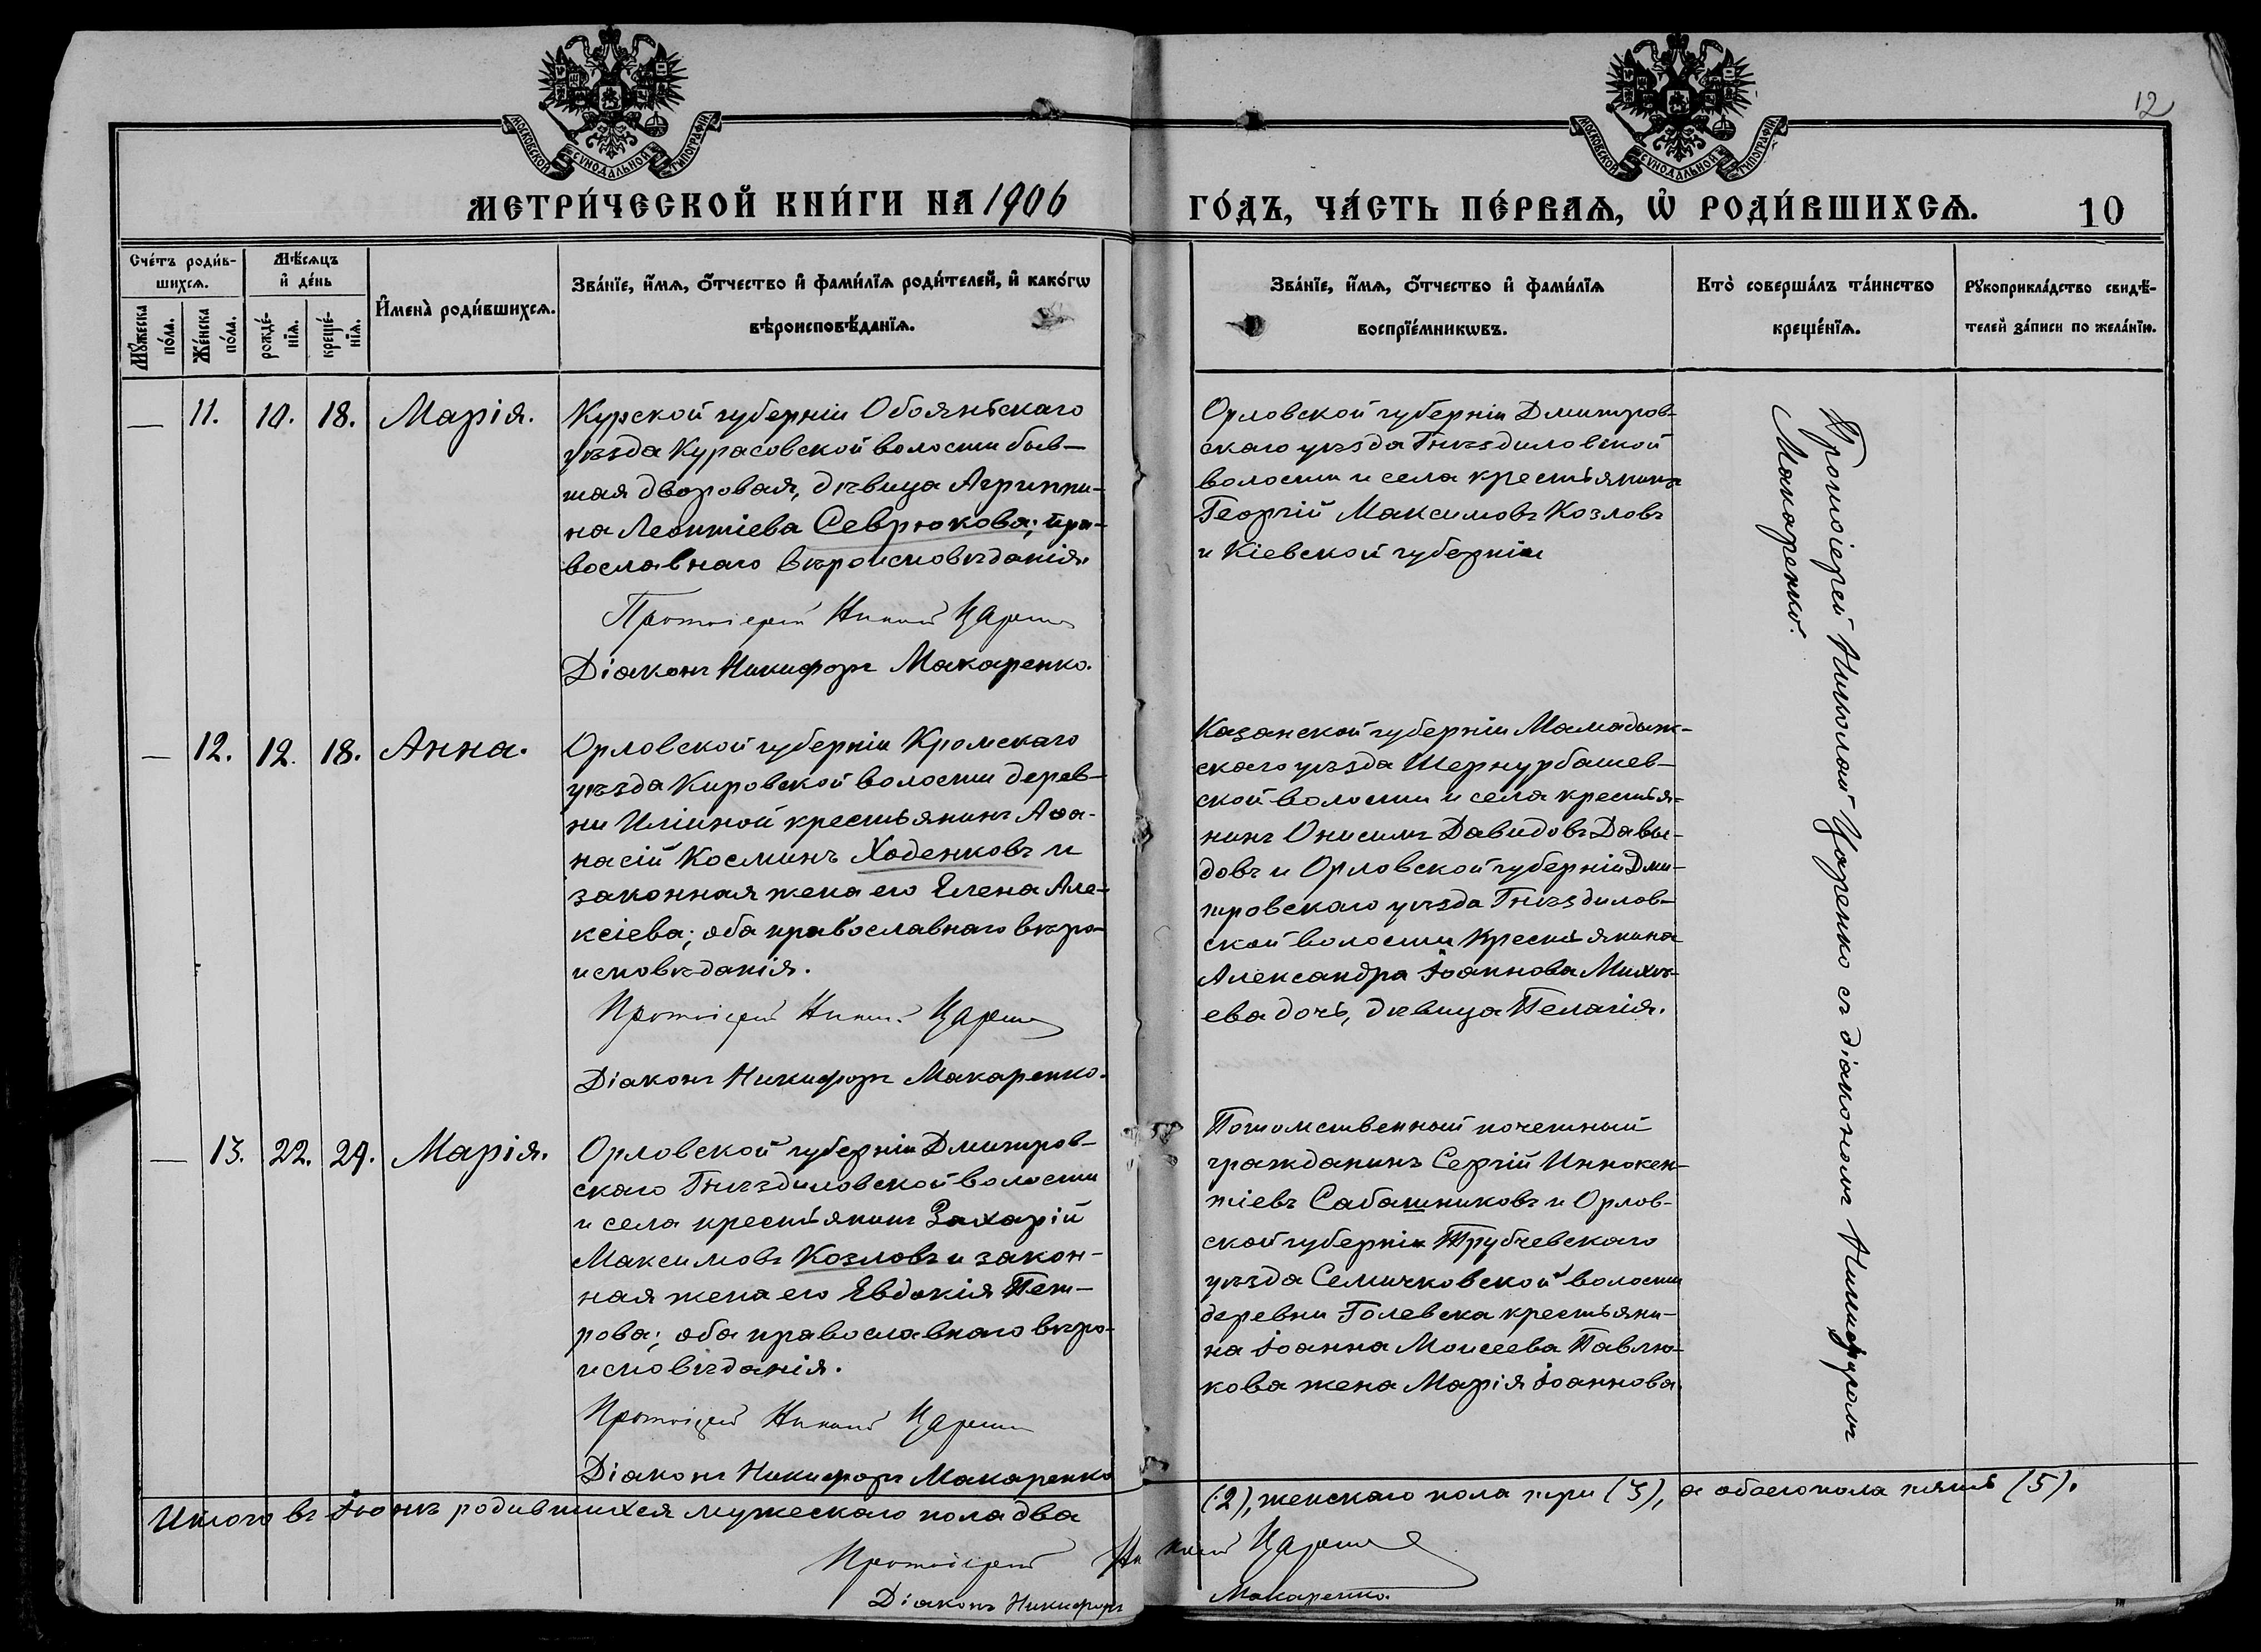 МОСКОВСКОЙ СУНОДАЛЬНОЙ ТИПОГРАФІИ
МОСКОВСКОЙ СУНОДАЛЬНОЙ ТИПОГРАФІИ
12
МЕТРИ́ЧЕСКОЙ КНИ́ГИ НА 1906
ГО́ДЪ, ЧА́СТЬ ПЕ́РВАѦ, Ѡ҆ РОДИ́ВШИХСѦ.
10
Сче́тъ роди́в-
шихсѧ.
Мѣ́сѧцъ
и҆ де́нь
Мꙋ́жеска
по́ла.
Же́нска
по́ла.
рожде́-
нїѧ.
креще́-
нїѧ.
И҆мена̀ роди́вшихсѧ.
Зва́нїе, и҆́мѧ, ѻ҆́тчество и҆ фами́лїѧ роди́телей, и҆ како́гѡ
вѣроисповѣ́данїѧ.
Зва́нїе, и҆́мѧ, ѻ҆́тчество и҆ фами́лїѧ
воспрїе́мникѡвъ.
Кто̀ соверша́лъ та́инство
креще́нїѧ.
Рꙋкоприкла́дство свидѣ́-
телей за́писи по жела́нїю.
— 11. 10. 18. Марія.
Курской губерніи Обоянскаго
уѣзда Курасовской волости быв-
шая дворовая, дѣвица Агриппи-
на Леонтіева Севрюкова; пра-
вославнаго вѣроисповѣданія.
Протоіерей Николай Царенко
Діаконъ Никифоръ Макаренко.
Орловской губерніи Дмитров-
скаго уѣзда Гнѣздиловской
волости и села крестьянинъ
Георгій Максимовъ Козловъ
и Кіевской губерніи
Протоіерей Николай Царенко съ діакономъ Никифоромъ
Макаренко.
— 12. 12. 18. Анна.
Орловской губерніи Кромскаго
уѣзда Кировской волости дерев-
ни Ильиной крестьянинъ Аѳа-
насій Косминъ Ходенковъ и
законная жена его Елена Але-
ксіева; оба православнаго вѣро-
исповѣданія.
Протоіерей Николай Царенко
Діаконъ Никифоръ Макаренко.
Казанской губерніи Мамадыж-
скаго уѣзда Шернурбашев-
ской волости и села крестья-
нинъ Онисимъ Давидовъ Давы-
довъ и Орловской губерніи Дми-
тровскаго уѣзда Гнѣздилов-
ской волости крестьянина
Александра Іоаннова Михѣ-
ева дочь, дѣвица Пелагія.
— 13. 22. 24. Марія.
Орловской губерніи Дмитров-
скаго Гнѣздиловской волости
и села крестьянинъ Захарій
Максимовъ Козловъ и закон-
ная жена его Евдокія Пет-
рова; оба православнаго вѣро-
исповѣданія.
Протоіерей Николай Царенко
Діаконъ Никифоръ Макаренко
Потомственный почетный
гражданинъ Сергій Иннокен-
тіевъ Сабашниковъ и Орлов-
ской губерніи Трубчевскаго
уѣзда Семячковской волости
деревни Голевска крестьяни-
на Іоанна Моисеева Павлю-
кова жена Марія Іоаннова.
Итого въ Іюнѣ родившихся мужескаго пола два
(2), женскаго пола три (3), а обоего пола пять (5).
Протоіерей Николай Царенко
Діаконъ Никифоръ Макаренко.